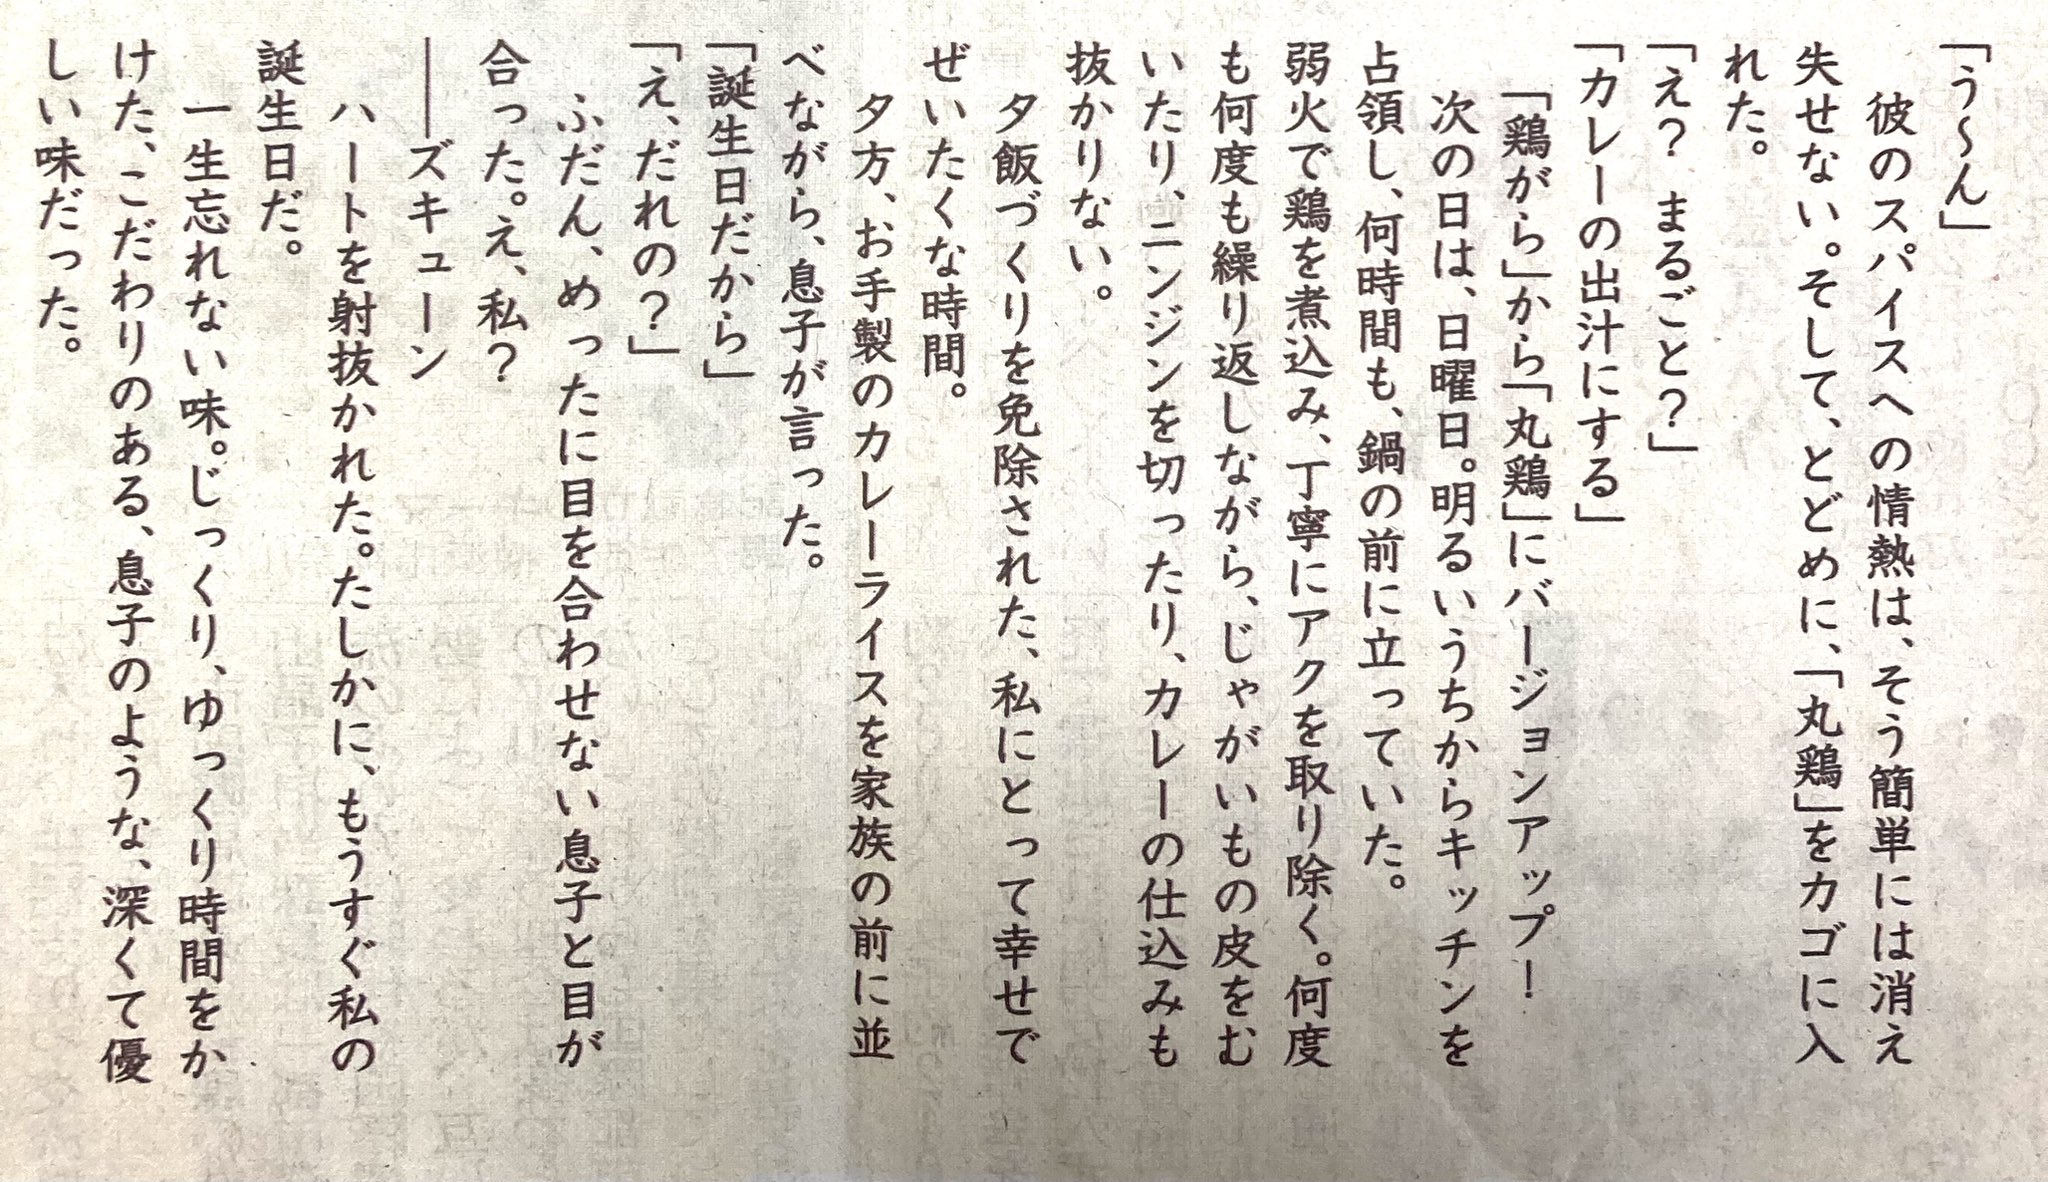 「う〜ん」
　彼のスパイスへの情熱は、そう簡単には消え
失せない。そして、とどめに、「丸鶏」をカゴに入
れた。
「え？ まるごと？」
「カレーの出汁にする」
　「鶏がら」から「丸鶏」にバージョンアップ！
　次の日は、日曜日。明るいうちからキッチンを
占領し、何時間も、鍋の前に立っていた。
弱火で鶏を煮込み、丁寧にアクを取り除く。何度
も何度も繰り返しながら、じゃがいもの皮をむ
いたり、ニンジンを切ったり、カレーの仕込みも
抜かりない。
　夕飯づくりを免除された、私にとって幸せで
ぜいたくな時間。
　夕方、お手製のカレーライスを家族の前に並
べながら、息子が言った。
「誕生日だから」
「え、だれの？」
　ふだん、めったに目を合わせない息子と目が
合った。え、私？
――ズキューン
　ハートを射抜かれた。たしかに、もうすぐ私の
誕生日だ。
　一生忘れない味。じっくり、ゆっくり時間をか
けた、こだわりのある、息子のような、深くて優
しい味だった。